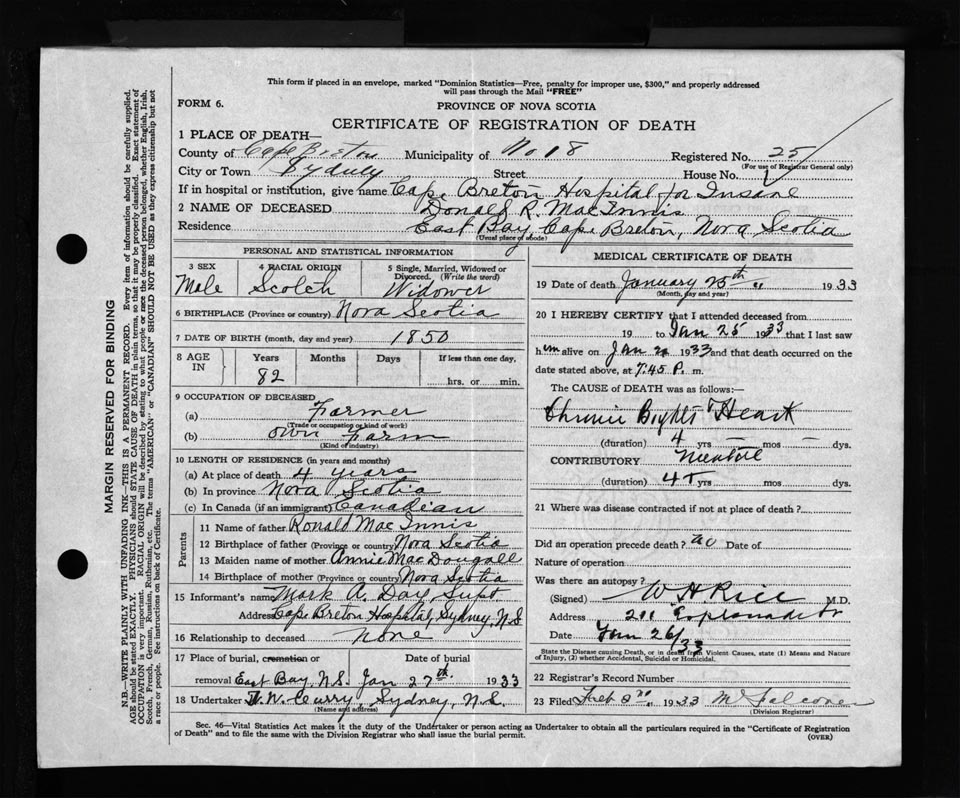 This form if placed in an envelope, marked "Dominion Statistics—Free, penalty for improper use, $300," and properly addressed
will pass through the Mail "FREE"
FORM 6.
PROVINCE OF NOVA SCOTIA
CERTIFICATE OF REGISTRATION OF DEATH
1 PLACE OF DEATH—
County of Cape Breton Municipality of No 18 Registered No. 25
(For use of Registrar General only)
City or Town Sydney Street House No.
If in hospital or institution, give name Cape Breton Hospital for Insane
2 NAME OF DECEASED Donald R. MacInnis
Residence East Bay, Cape Breton, Nova Scotia
(Usual place of abode)
PERSONAL AND STATISTICAL INFORMATION
3 SEX 4 RACIAL ORIGIN 5 Single, Married, Widowed or Divorced. (Write the word)
Male Scotch Widower
6 BIRTHPLACE (Province or country) Nova Scotia
7 DATE OF BIRTH (month, day and year) 1850
8 AGE IN Years Months Days If less than one day,
82 hrs. or min.
9 OCCUPATION OF DECEASED
(a) Farmer
(Trade or occupation or kind of work)
(b) own Farm
(Kind of industry)
10 LENGTH OF RESIDENCE (in years and months)
(a) At place of death 4 years
(b) In province Nova Scotia
(c) In Canada (if an immigrant) Canadian
Parents
11 Name of father Ronald MacInnis
12 Birthplace of father (Province or country) Nova Scotia
13 Maiden name of mother Annie MacDougall
14 Birthplace of mother (Province or country) Nova Scotia
15 Informant's name Mark A. Day, Supt
Address Cape Breton Hospital, Sydney, N.S
16 Relationship to deceased None
17 Place of burial, cremation or Date of burial
removal East Bay, N.S. Jan 27th 1933
18 Undertaker W. Curry, Sydney, N.S.
(Name and address)
MEDICAL CERTIFICATE OF DEATH
19 Date of death January 25th " 1933
(Month, day and year)
20 I HEREBY CERTIFY that I attended deceased from
19 to Jan 25 1933 that I last saw
him alive on Jan 1933 and that death occurred on the
date stated above, at 7.45 P. m.
The CAUSE of DEATH was as follows:—
Chronic Brights Heart
(duration) 4 yrs — mos — dys.
CONTRIBUTORY
(duration) yrs mos dys.
21 Where was disease contracted if not at place of death?
Did an operation precede death? no Date of
Nature of operation
Was there an autopsy?
(Signed) W H Rice M.D.
Address 211 Esplanade
Date Jan 26/33
State the Disease causing Death, or in death from Violent Causes, state (1) Means and Nature of Injury, (2) whether Accidental, Suicidal or Homicidal.
22 Registrar's Record Number
23 Filed Feb " 1933 M Falconer
(Division Registrar)
Sec. 46—Vital Statistics Act makes it the duty of the Undertaker or person acting as Undertaker to obtain all the particulars required in the "Certificate of Registration
of Death" and to file the same with the Division Registrar who shall issue the burial permit.
(OVER)
MARGIN RESERVED FOR BINDING
N.B.—WRITE PLAINLY WITH UNFADING INK—THIS IS A PERMANENT RECORD. Every item of information should be carefully supplied.
AGE should be stated EXACTLY. PHYSICIANS should STATE CAUSE OF DEATH in plain terms, so that it may be properly classified. Exact statement of
OCCUPATION is very important. RACIAL ORIGIN will be described by stating to what people or race the deceased person belonged, whether English, Irish,
Scotch, French, German, Russian, Ruthenian, etc. The terms "AMERICAN" or "CANADIAN" SHOULD NOT BE USED as they express citizenship but not
a race or people. See instructions on back of Certificate.